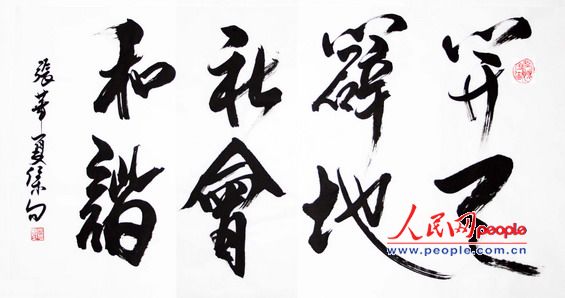 開天
闢地
社會
和諧
張華夏
人民网people
www.people.com.cn